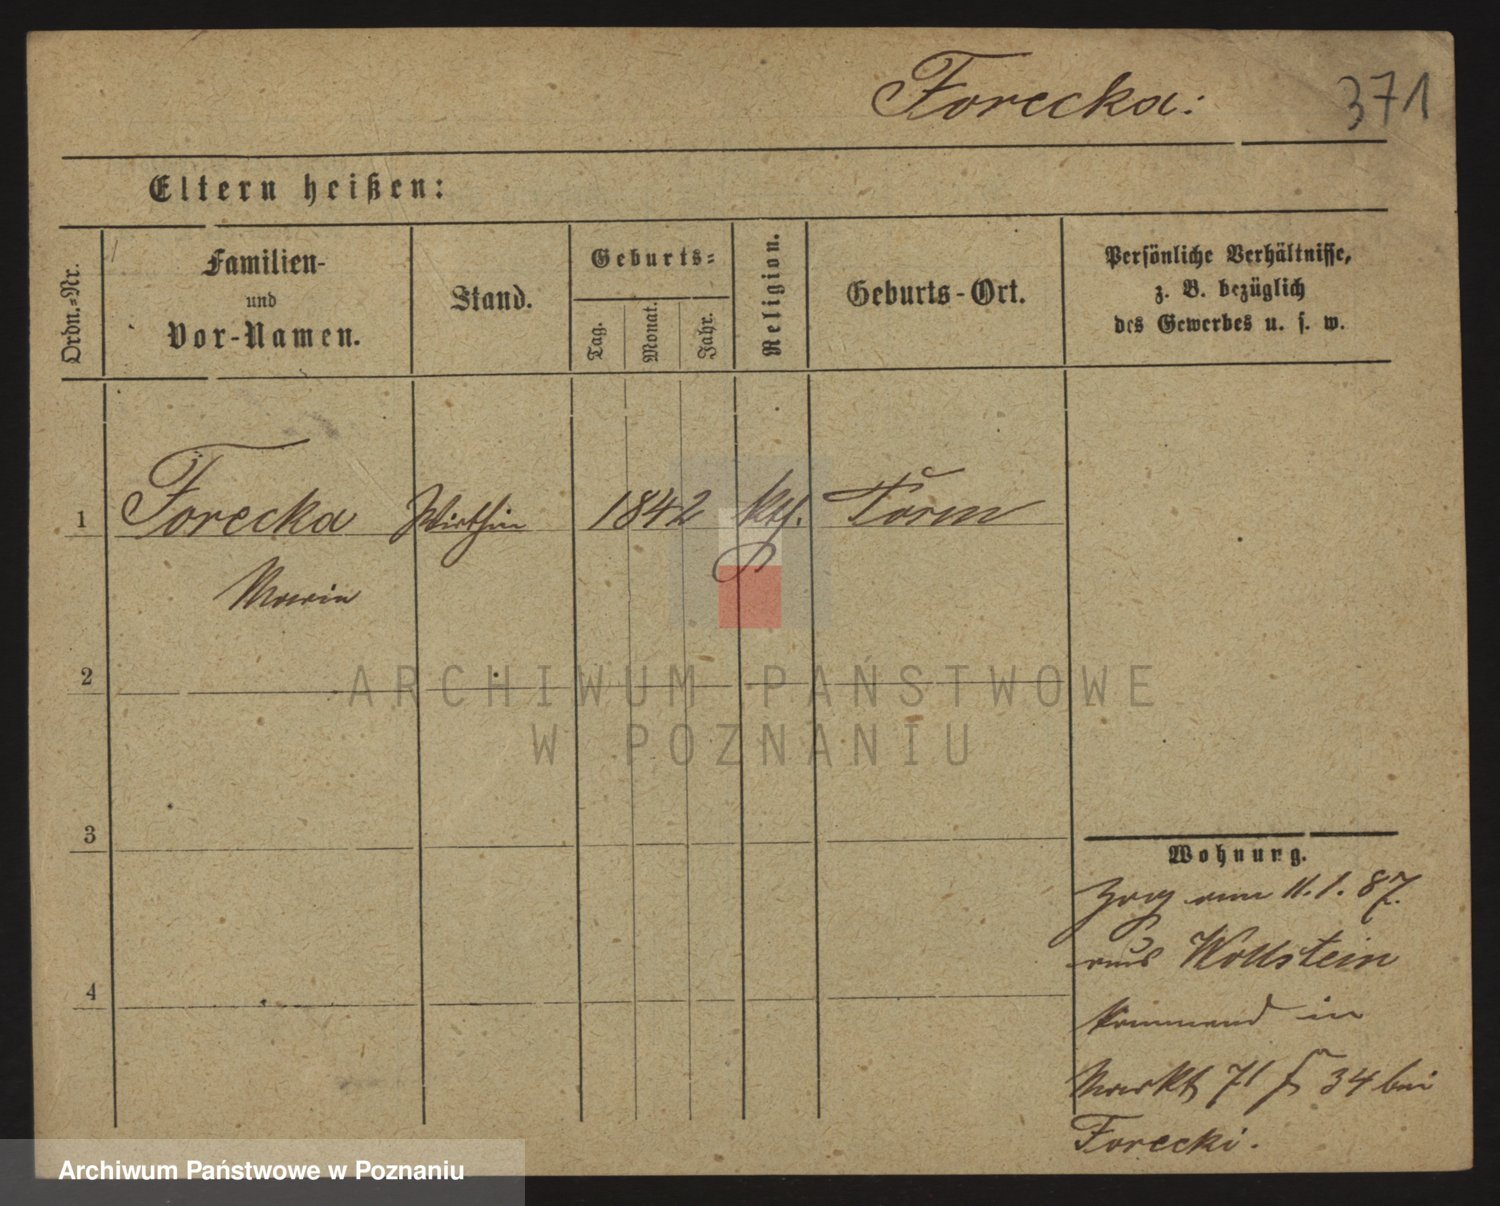 Forecka:
371
Eltern heißen:
Ordn.=Nr.
Familien-
und
Vor-Namen.
Stand.
Geburts=
Tag.
Monat.
Jahr.
Religion.
Geburts-Ort.
Persönliche Verhältnisse,
z. B. bezüglich
des Gewerbes u. s. w.
1 Forecka Wirthin 1842 kth.
Marie
2
3
4
Wohnung.
Zog am 11.1.87.
aus Wollstein
kommend in
Markt 71 34 bei
Forecki.
ARCHIWUM PAŃSTWOWE
W POZNANIU
Archiwum Państwowe w Poznaniu